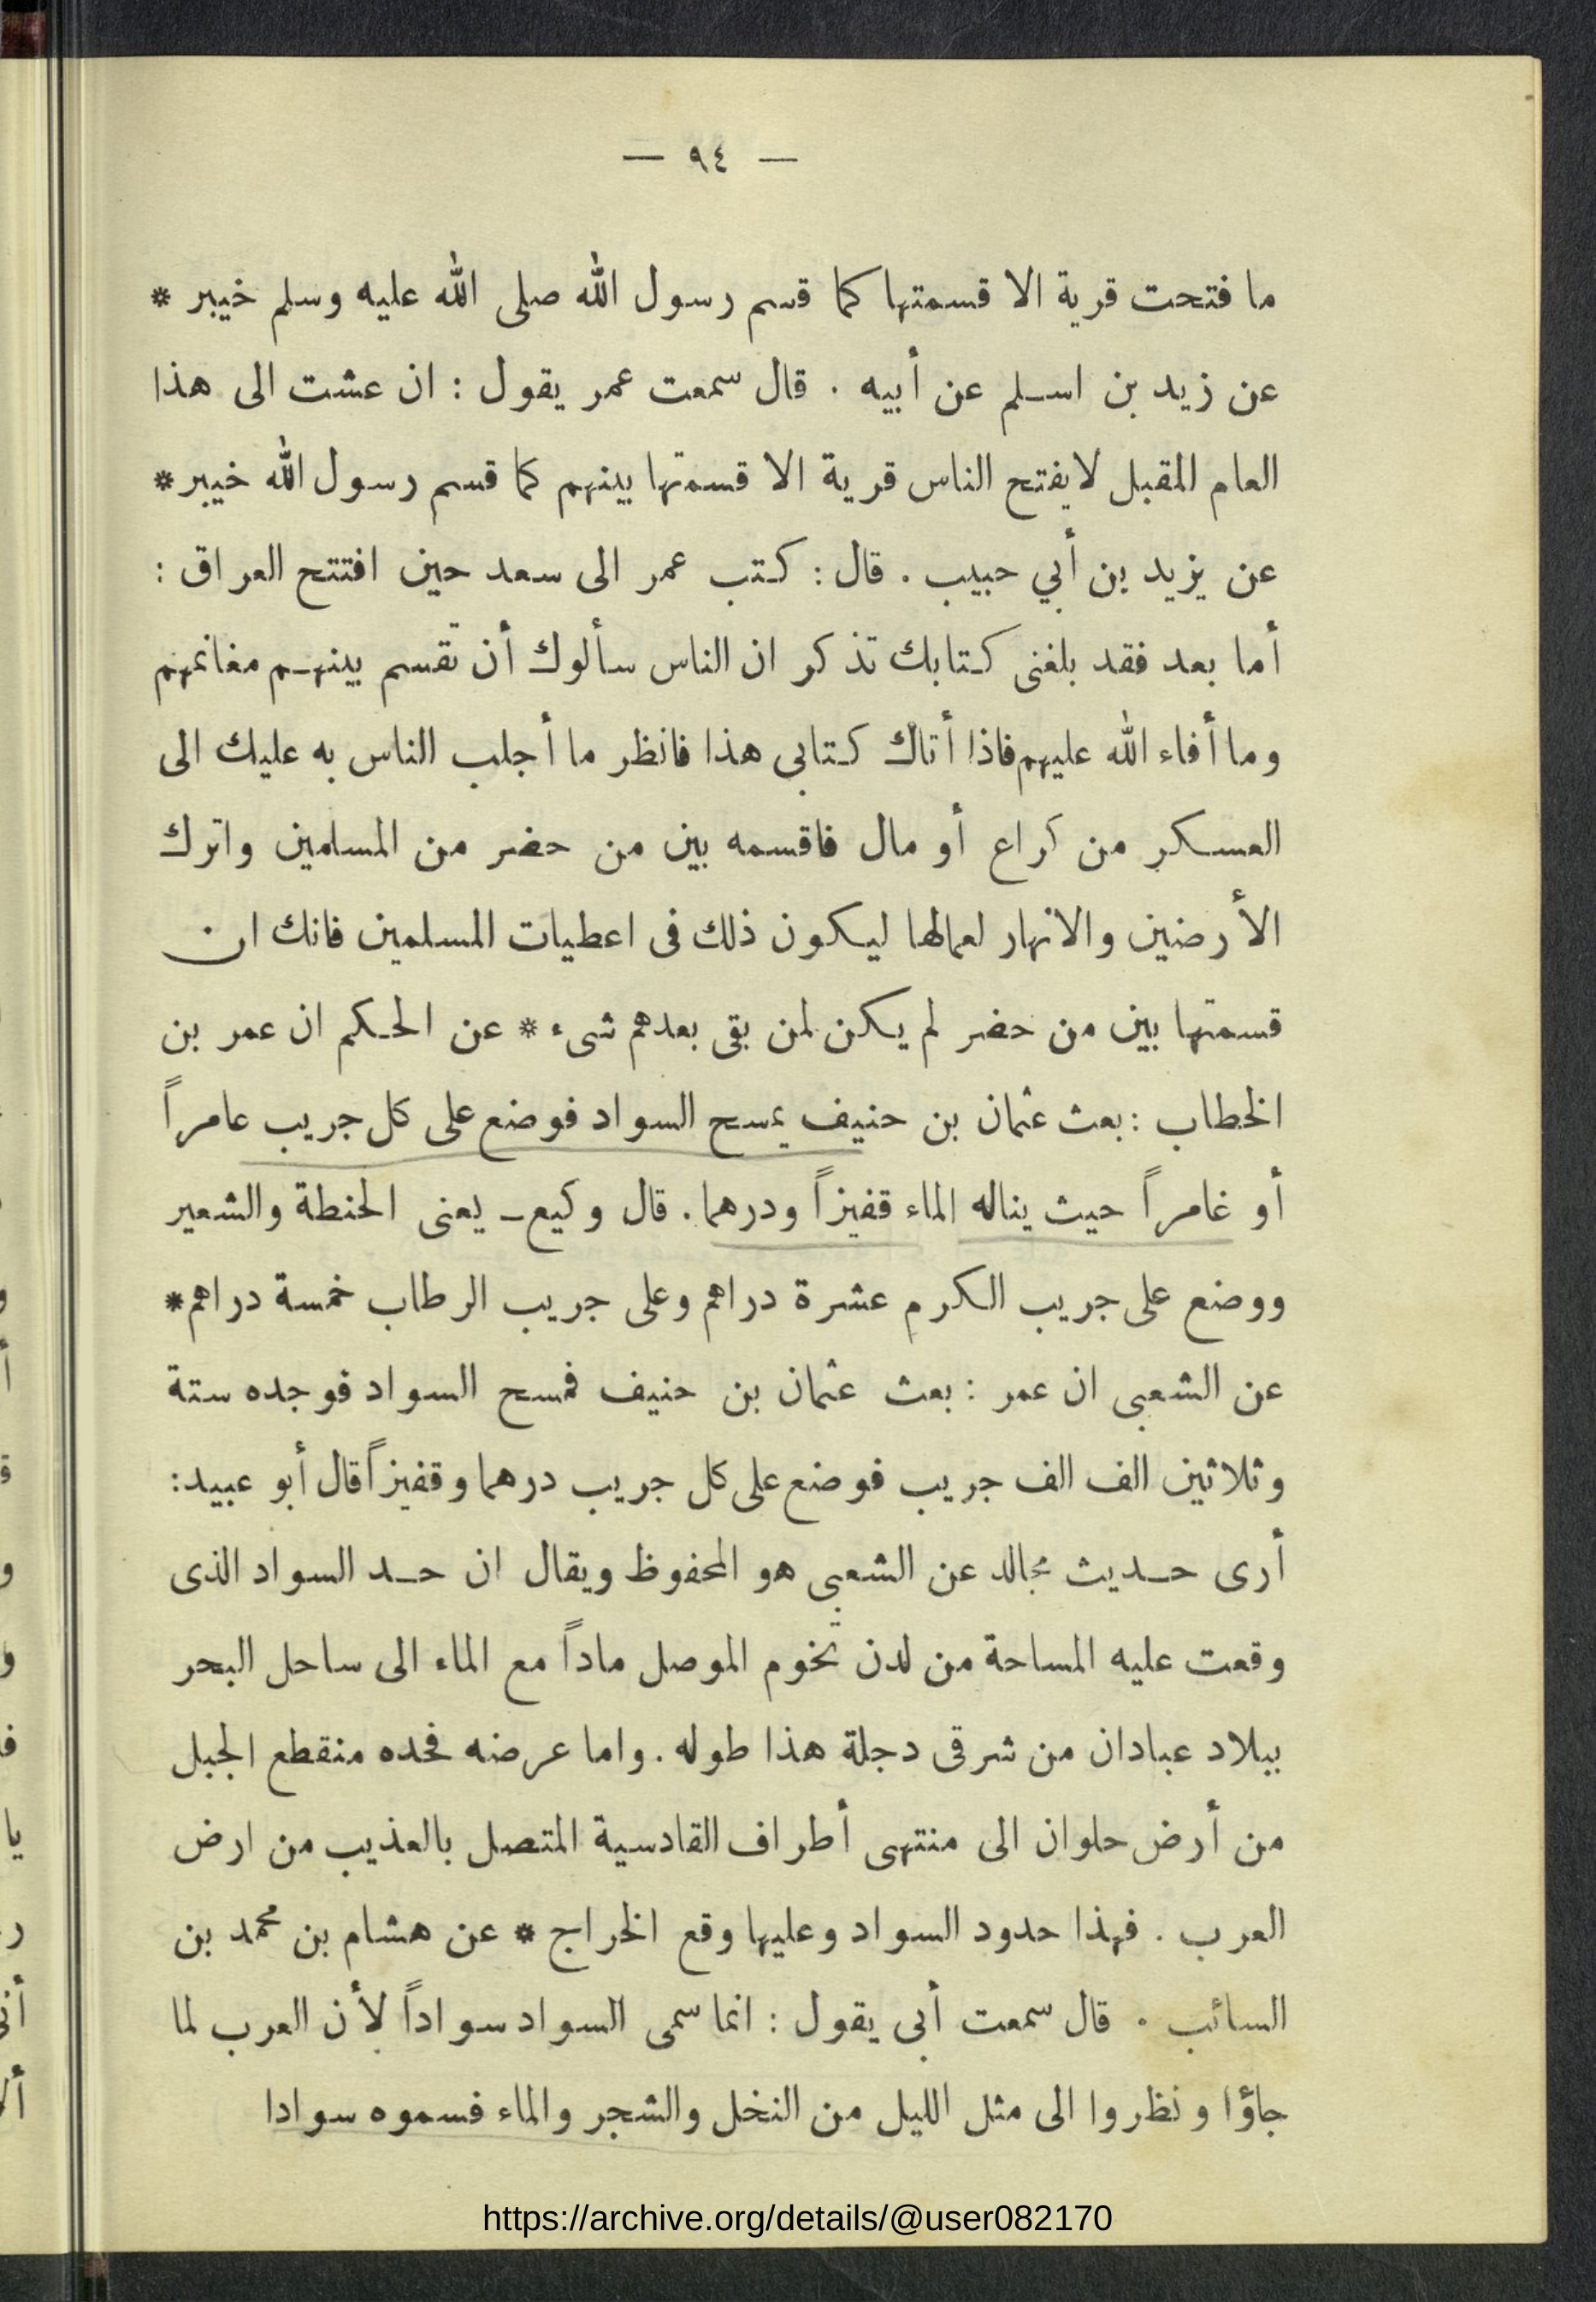 — ٩٤ —
ما فتحت قرية الا قسمتها كما قسم رسول الله صلى الله عليه وسلم خيبر *
عن زيد بن اسلم عن أبيه . قال سمعت عمر يقول : ان عشت الى هذا
العام المقبل لا يفتح الناس قرية الا قسمتها بينهم كما قسم رسول الله خيبر *
عن يزيد بن أبي حبيب . قال : كتب عمر الى سعد حين افتتح العراق :
أما بعد فقد بلغنى كتابك تذكر ان الناس سألوك أن تقسم بينهم مغانمهم
وما أفاء الله عليهم فاذا أتاك كتابى هذا فانظر ما أجلب الناس به عليك الى
العسكر من كراع أو مال فاقسمه بين من حضر من المسلمين واترك
الأرضين والانهار لعمالها ليكون ذلك فى اعطيات المسلمين فانك ان
قسمتها بين من حضر لم يكن لمن بقى بعدهم شىء * عن الحكم ان عمر بن
الخطاب : بعث عثمان بن حنيف يمسح السواد فوضع على كل جريب عامراً
أو غامراً حيث يناله الماء قفيزاً ودرهما . قال وكيع ـ يعنى الحنطة والشعير
ووضع على جريب الكرم عشرة دراهم وعلى جريب الرطاب خمسة دراهم *
عن الشعبى ان عمر : بعث عثمان بن حنيف فمسح السواد فوجده ستة
وثلاثين الف الف جريب فوضع على كل جريب درهما وقفيزاً قال أبو عبيد :
أرى حديث مجالد عن الشعبى هو المحفوظ ويقال ان حد السواد الذى
وقعت عليه المساحة من لدن تخوم الموصل ماداً مع الماء الى ساحل البحر
ببلاد عبادان من شرقى دجلة هذا طوله . واما عرضه فحده منقطع الجبل
من أرض حلوان الى منتهى أطراف القادسية المتصل بالعذيب من ارض
العرب . فهذا حدود السواد وعليها وقع الخراج * عن هشام بن محمد بن
السائب . قال سمعت أبى يقول : انما سمى السواد سواداً لأن العرب لما
جاؤا ونظروا الى مثل الليل من النخل والشجر والماء فسموه سوادا
https://archive.org/details/@user082170